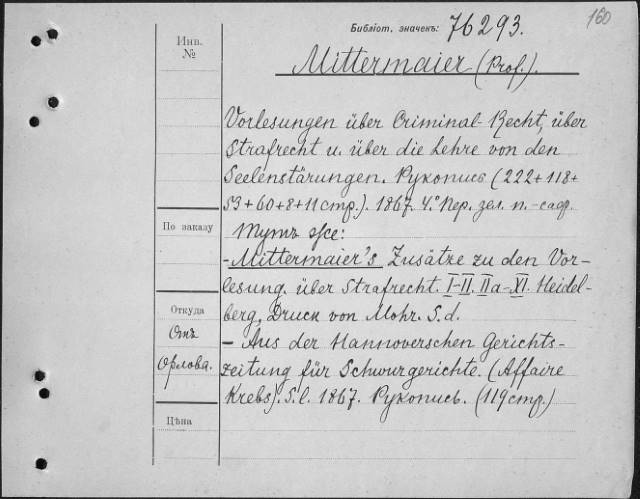 160
Библіот. значекъ: 76293.
Инв.
№
Mittermaier (Prof.).
Vorlesungen über Criminal-Recht, über
Strafrecht u. über die Lehre von den
Seelenstärungen. Рукопись (222+118+
53+60+8+11 стр.). 1867. 4.° Пер. зел. п.-саф.
По заказу
Тутъ же:
-Mittermaier's Zusätze zu den Vor-
lesung. über Strafrecht. I-II. IIa-XI. Heidel-
Откуда
berg, Druck von Mohr. S.d.
Отъ
- Aus der Hannoverschen Gerichts-
Орлова.
zeitung für Schwurgerichte. (Affaire
Krebs). S.l. 1867. Рукопись. (119 стр.)
Цѣна